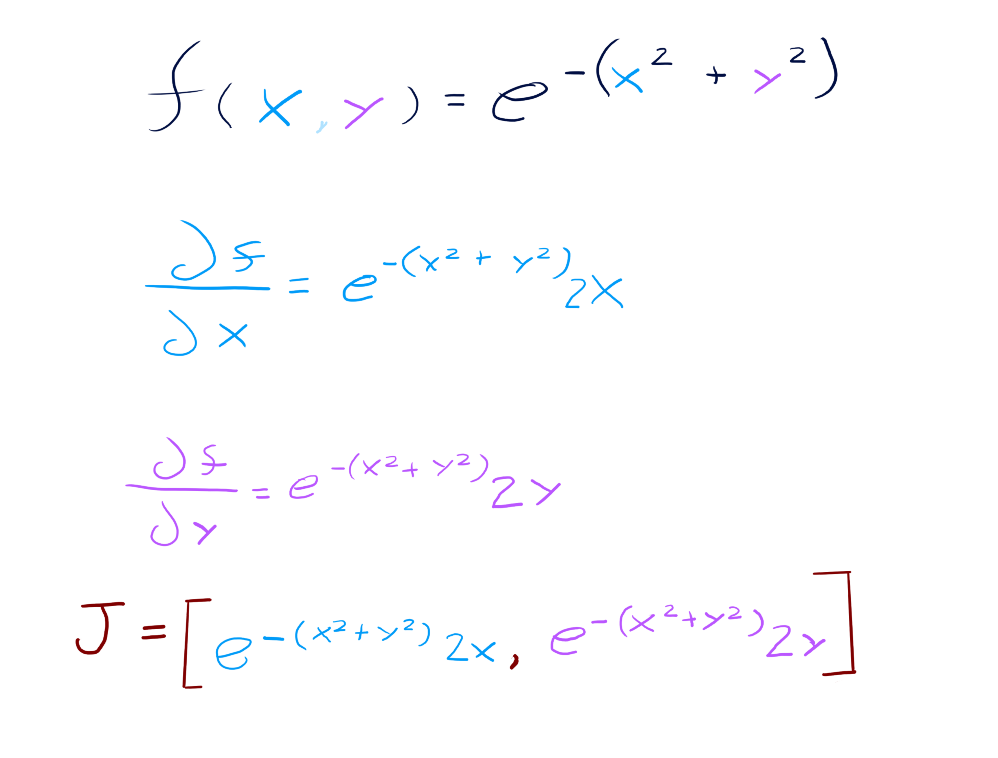 f(x,y) = e^{-(x^2 + y^2)}
∂f/∂x = e^{-(x^2 + y^2)}2x
∂f/∂y = e^{-(x^2+y^2)}2y
J = [e^{-(x^2+y^2)}2x, e^{-(x^2+y^2)}2y]